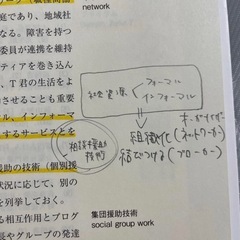 network
庭であり、地域社
なる。障害を持つ
委員が連携を維持
ティアを巻き込ん
、T君の生活をよ
社会資源
フォーマル
インフォーマル
ル、インフォーマ
するサービスとを
組織化(ネットワーカー)
結びつける(ブローカー)
相談援助
技術
援助の技術(個別援
状況に応じて、別の
を列挙しておく。
る相互作用とプログ
集団援助技術
social group work
長やグループの発達